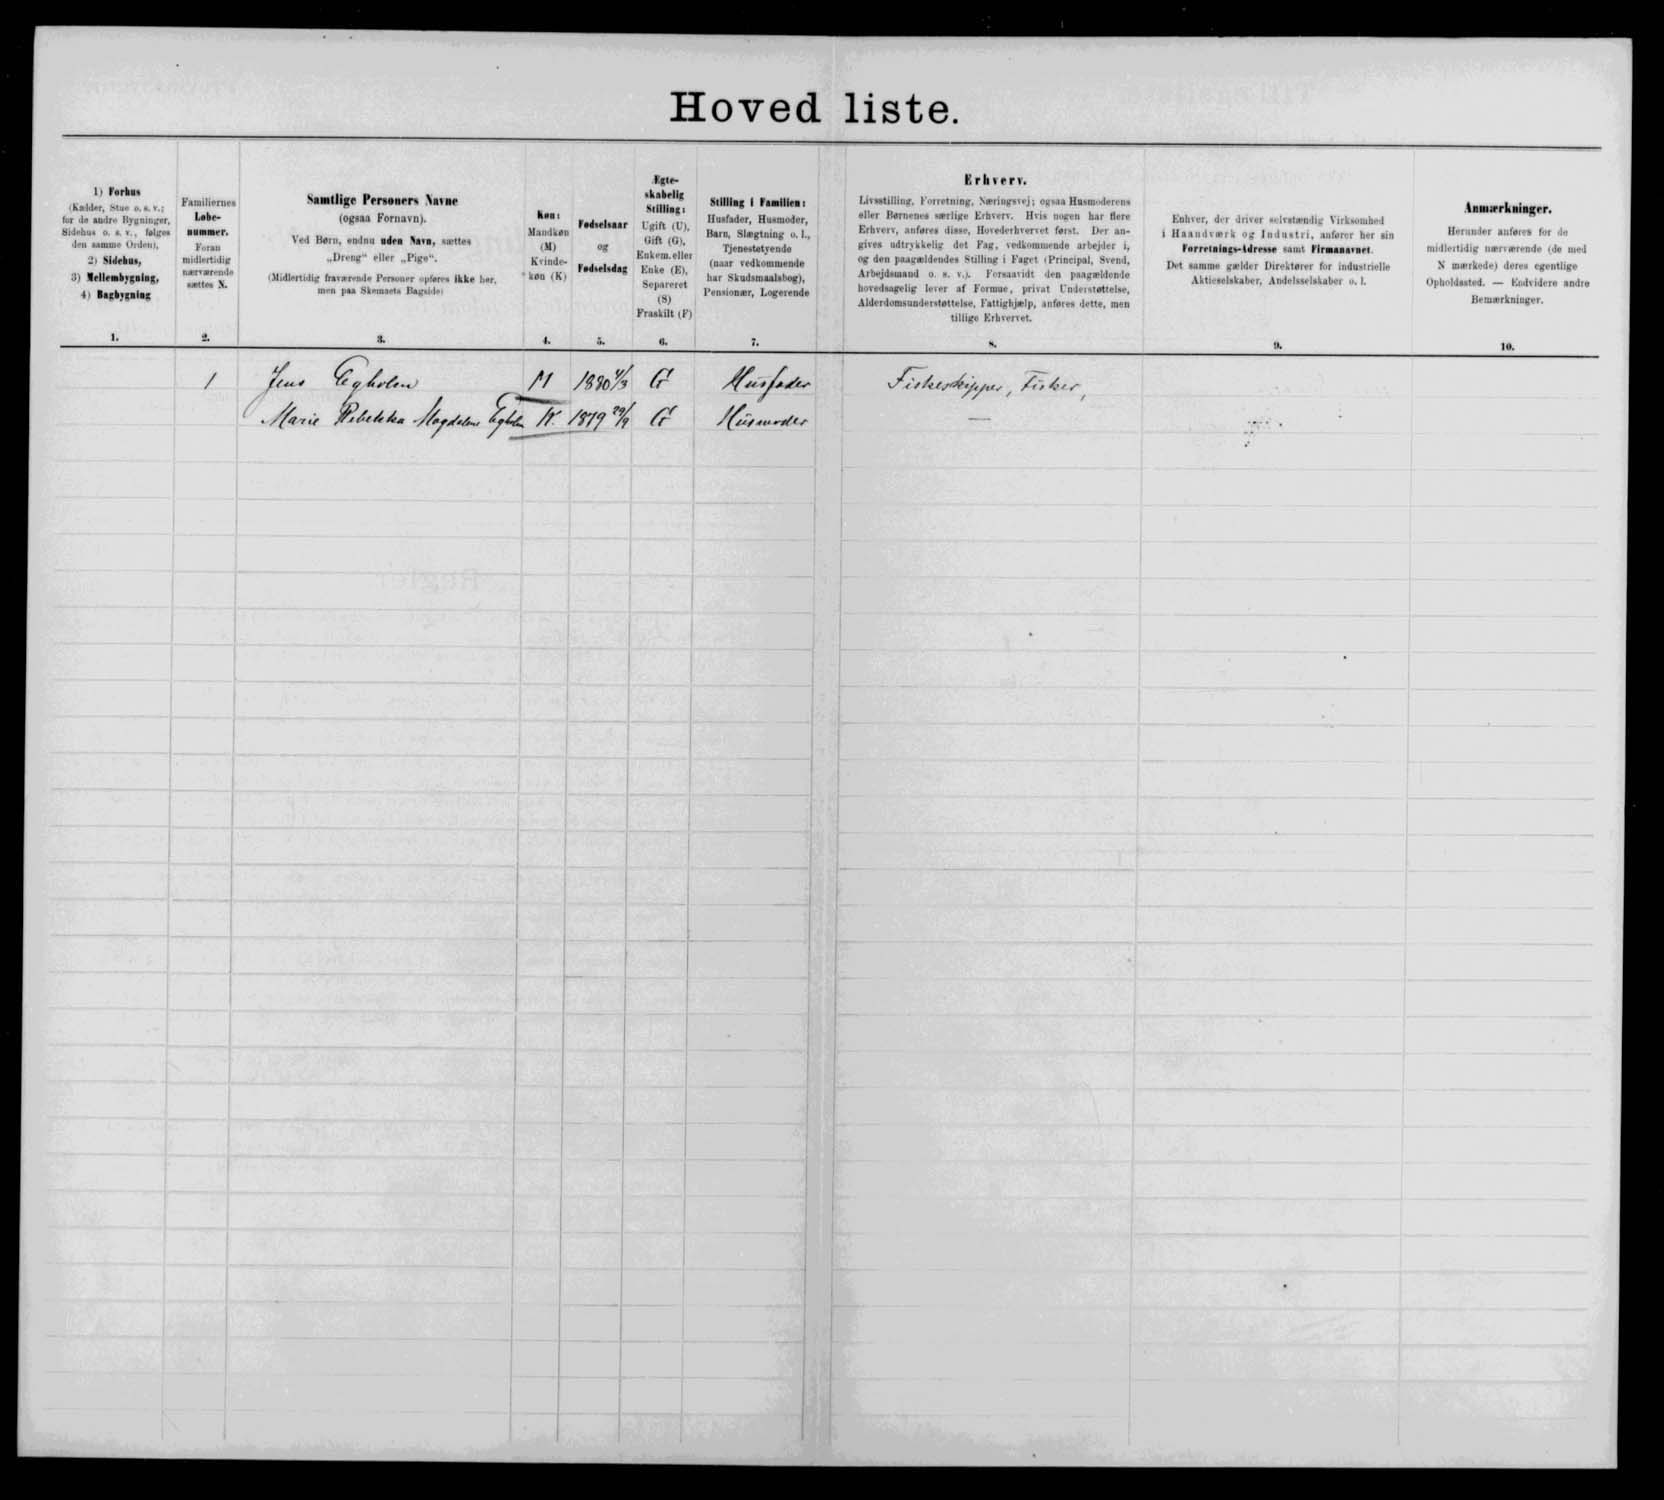 Hoved liste.
1) Forhus
(Kælder, Stue o. s. v.;
for de andre Bygninger,
Sidehus o. s. v., følges
den samme Orden),
2) Sidehus,
3) Mellembygning,
4) Bagbygning
1.
Familiernes
Løbe-
nummer.
Foran
midlertidig
nærværende
sættes N.
2.
Samtlige Personers Navne
(ogsaa Fornavn).
Ved Børn, endnu uden Navn, sættes
„Dreng“ eller „Pige“.
(Midlertidig fraværende Personer opføres ikke her,
men paa Skemaets Bagside)
3.
Køn:
Mandkøn
(M)
Kvinde-
køn (K)
4.
Fødselsaar
og
Fødselsdag
5.
Ægte-
skabelig
Stilling:
Ugift (U),
Gift (G),
Enkem. eller
Enke (E),
Separeret
(S)
Fraskilt (F)
6.
Stilling i Familien:
Husfader, Husmoder,
Barn, Slægtning o. l.,
Tjenestetyende
(naar vedkommende
har Skudsmaalsbog),
Pensionær, Logerende
7.
Erhverv.
Livsstilling, Forretning, Næringsvej; ogsaa Husmoderens
eller Børnenes særlige Erhverv. Hvis nogen har flere
Erhverv, anføres disse, Hovederhvervet først. Der an-
gives udtrykkelig det Fag, vedkommende arbejder i,
og den paagældendes Stilling i Faget (Principal, Svend,
Arbejdsmand o. s. v.). Forsaavidt den paagældende
hovedsagelig lever af Formue, privat Understøttelse,
Alderdomsunderstøttelse, Fattighjælp, anføres dette, men
tillige Erhvervet.
8.
Enhver, der driver selvstændig Virksomhed
i Haandværk og Industri, anfører her sin
Forretnings-Adresse samt Firmanavnet.
Det samme gælder Direktører for industrielle
Aktieselskaber, Andelsselskaber o. l.
9.
Anmærkninger.
Herunder anføres for de
midlertidig nærværende (de med
N mærkede) deres egentlige
Opholdssted. — Endvidere andre
Bemærkninger.
10.
1 Jens Egholm M 1880 4/3 G Husfader Fiskeskipper, Fisker,
Marie Rebekka Magdalene Egholm K. 1879 29/9 G Husmoder —